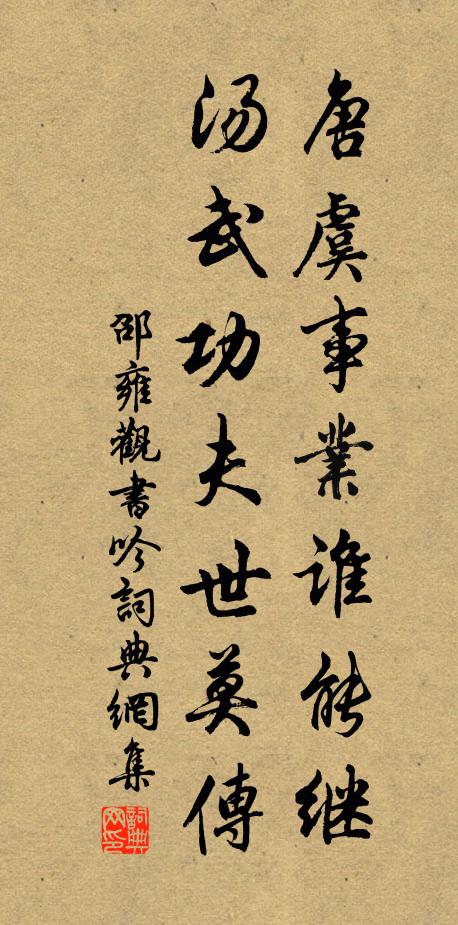 唐虞事業誰能继
汤武功夫世莫傳
邵雍觀書吟詞典網集
詞典网印